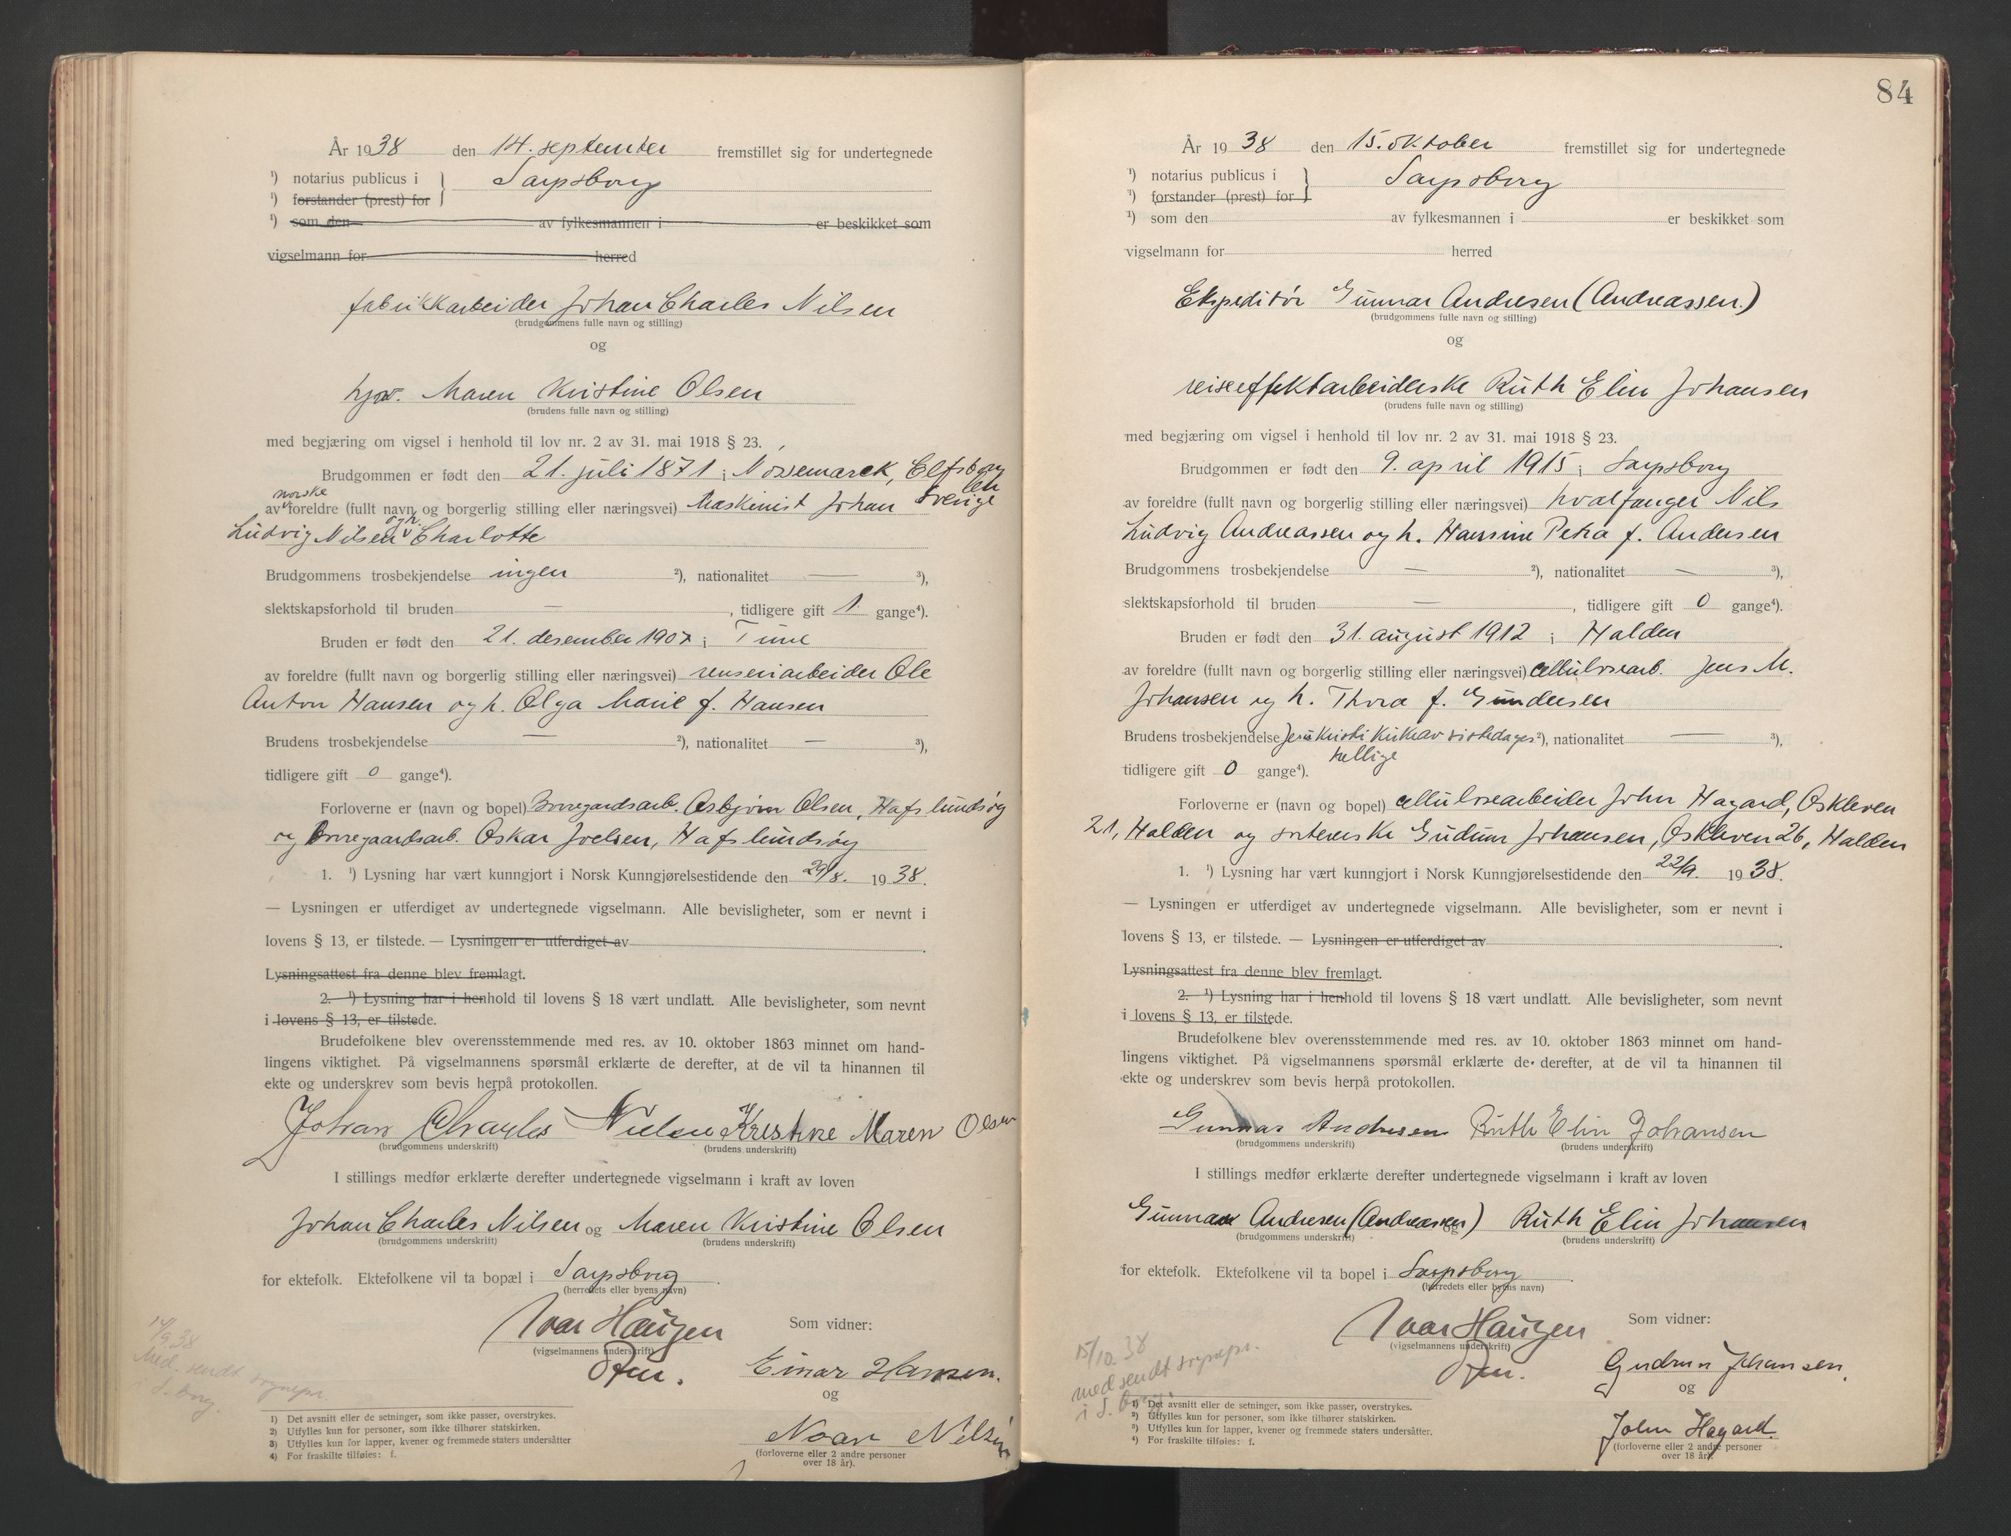 År 1938 den 14. september fremstillet sig for undertegnede
¹) notarius publicus i } Sarpsborg
¹) forstander (prest) for
¹) som den av fylkesmannen i er beskikket som
vigselmann for herred
fabrikkarbeider Johan Charles Nilsen
(brudgommens fulle navn og stilling)
og
Maren Kristine Olsen
(brudens fulle navn og stilling)
med begjæring om vigsel i henhold til lov nr. 2 av 31. mai 1918 § 23.
Brudgommen er født den 21. juli 1871 i Nossemarck, Elfsborg
len
norske Sverige
av foreldre (fullt navn og borgerlig stilling eller næringsvei) Maskinist Johan
Ludvig Nilsen og h. Charlotte
Brudgommens trosbekjendelse ingen ²), nationalitet — ³),
slektskapsforhold til bruden — , tidligere gift 1 gange⁴).
Bruden er født den 21. desember 1907 i Tune
av foreldre (fullt navn og borgerlig stilling eller næringsvei) renseriarbeider Ole
Anton Hansen og h. Olga Marie f. Hansen
Brudens trosbekjendelse — ²), nationalitet — ³),
tidligere gift 0 gange⁴).
Forloverne er (navn og bopel) Borregardsarb. Asbjørn Olsen, Hafslundsøy
og Borregaardsarb. Oskar Joelsen, Hafslundsøy
1. ¹) Lysning har vært kunngjort i Norsk Kunngjørelsestidende den 29/8. 1938.
— Lysningen er utferdiget av undertegnede vigselmann. Alle bevisligheter, som er nevnt i
lovens § 13, er tilstede. — Lysningen er utferdiget av .
Lysningsattest fra denne blev fremlagt.
2. ¹) Lysning har i henhold til lovens § 18 vært undlatt. Alle bevisligheter, som nevnt
i lovens § 13, er tilstede.
Brudefolkene blev overensstemmende med res. av 10. oktober 1863 minnet om hand-
lingens viktighet. På vigselmannens spørsmål erklærte de derefter, at de vil ta hinannen til
ekte og underskrev som bevis herpå protokollen.
Johan Charles Nielsen Kristine Maren Olsen
(brudgommens underskrift) (brudens underskrift)
I stillings medfør erklærte derefter undertegnede vigselmann i kraft av loven
Johan Charles Nilsen og Maren Kristine Olsen
(brudgommens underskrift) (brudens underskrift)
for ektefolk. Ektefolkene vil ta bopæl i Sarpsborg .
(herredets eller byens navn)
Ivar Haugen Som vidner:
(vigselmannens underskrift)
Einar Hansen.
og
Noar Nilsen
(forloverne eller 2 andre personer
over 18 år).
14/9 38
Med. sendt sognepr.
i S.borg.
1) Det avsnitt eller de setninger, som ikke passer, overstrykes.
2) Utfylles kun for personer, som ikke tilhører statskirken.
3) Utfylles kun for lapper, kvener og fremmede staters undersåtter
4) For fraskilte tilføies: f.
84
År 1938 den 15. oktober fremstillet sig for undertegnede
¹) notarius publicus i } Sarpsborg
¹) forstander (prest) for
¹) som den av fylkesmannen i er beskikket som
vigselmann for herred
Ekspeditør Gunnar Andresen (Andreassen.)
(brudgommens fulle navn og stilling)
og
reiseeffektarbeiderske Ruth Elin Johansen
(brudens fulle navn og stilling)
med begjæring om vigsel i henhold til lov nr. 2 av 31. mai 1918 § 23.
Brudgommen er født den 9. april 1915 i Sarpsborg
av foreldre (fullt navn og borgerlig stilling eller næringsvei) hvalfanger Nils
Ludvig Andreassen og h. Hansine Petra f. Andersen
Brudgommens trosbekjendelse — ²), nationalitet — ³),
slektskapsforhold til bruden — , tidligere gift 0 gange⁴).
Bruden er født den 31. august 1912 i Halden
av foreldre (fullt navn og borgerlig stilling eller næringsvei) cellulosearb. Jens M.
Johansen og h. Thora f. Gundersen
Brudens trosbekjendelse Jesu Kristi Kirke av sistedages ²), nationalitet — ³),
hellige
tidligere gift 0 gange⁴).
Forloverne er (navn og bopel) cellulosearbeider John Hagard, Oskleven
21, Halden og sortererske Gudrun Johansen, Oskleven 26, Halden
1. ¹) Lysning har vært kunngjort i Norsk Kunngjørelsestidende den 22/9. 1938.
— Lysningen er utferdiget av undertegnede vigselmann. Alle bevisligheter, som er nevnt i
lovens § 13, er tilstede. — Lysningen er utferdiget av .
Lysningsattest fra denne blev fremlagt.
2. ¹) Lysning har i henhold til lovens § 18 vært undlatt. Alle bevisligheter, som nevnt
i lovens § 13, er tilstede.
Brudefolkene blev overensstemmende med res. av 10. oktober 1863 minnet om hand-
lingens viktighet. På vigselmannens spørsmål erklærte de derefter, at de vil ta hinannen til
ekte og underskrev som bevis herpå protokollen.
Gunnar Andresen Ruth Elin Johansen
(brudgommens underskrift) (brudens underskrift)
I stillings medfør erklærte derefter undertegnede vigselmann i kraft av loven
Gunnar Andresen (Andreassen) og Ruth Elin Johansen
(brudgommens underskrift) (brudens underskrift)
for ektefolk. Ektefolkene vil ta bopel i Sarpsborg .
(herredets eller byens navn)
Ivar Haugen Som vidner:
(vigselmannens underskrift)
Gudrun Johansen.
og
John Hagard.
(forloverne eller 2 andre personer
over 18 år).
15/10. 38
med sendt sognepr.
i S.borg
¹) Det avsnitt eller de setninger, som ikke passer, overstrykes.
²) Utfylles kun for personer, som ikke tilhører statskirken.
³) Utfylles kun for lapper, kvener og fremmede staters undersåtter.
⁴) For fraskilte tilføies: f.